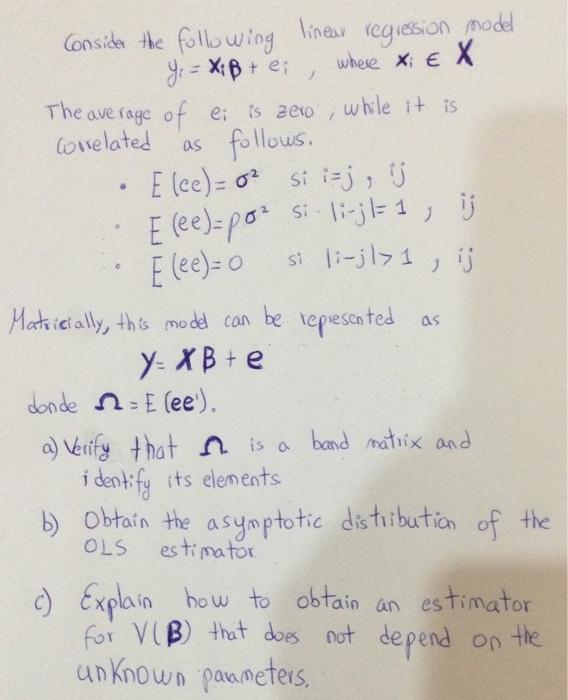 Consider the following linear regression model
yi = XiB + ei , where Xi ∈ X
The average of ei is zero, while it is
correlated as follows.
• E(ee) = σ² si i=j , ij
• E(ee)=ρσ² si |i-j|= 1 , ij
• E(ee)=0 si |i-j|>1 , ij
Matricially, this model can be represented as
y= XB + e
donde Ω = E(ee').
a) Verify that Ω is a band matrix and
identify its elements
b) Obtain the asymptotic distribution of the
OLS estimator.
c) Explain how to obtain an estimator
for V(B) that does not depend on the
unknown parameters.